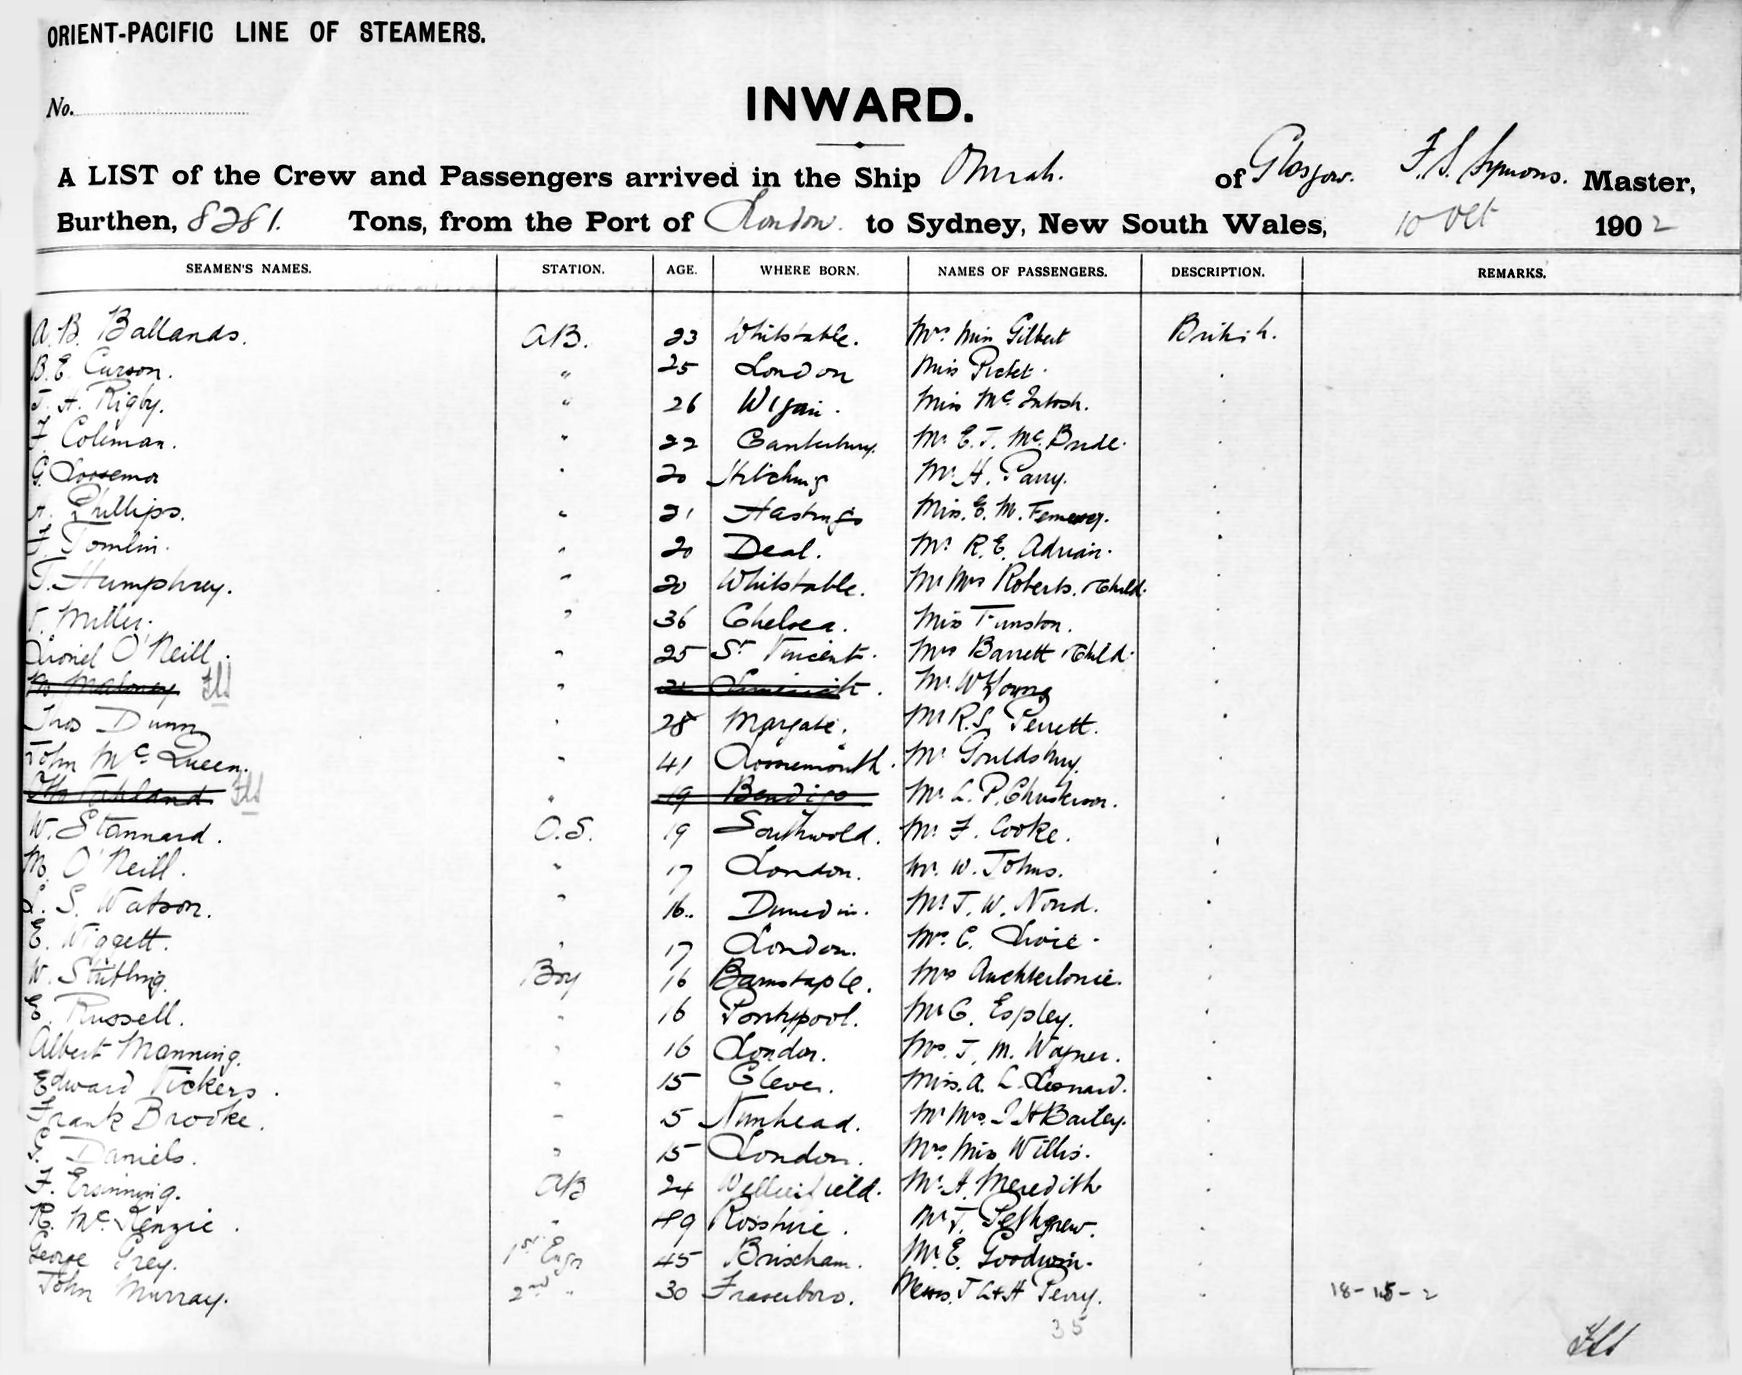 ORIENT-PACIFIC LINE OF STEAMERS.
No.
INWARD.
A LIST of the Crew and Passengers arrived in the Ship Omrah. of Glasgow. F. S. Symons. Master,
Burthen, 8281. Tons, from the Port of London. to Sydney, New South Wales, 10 Oct 1902
SEAMEN'S NAMES. STATION. AGE. WHERE BORN. NAMES OF PASSENGERS. DESCRIPTION. REMARKS.
A. B. Ballands. AB. 23 Whitstable. Mrs Miss Gilbert British.
B. E. Curson. " 25 London Miss Picket.
J. A. Rigby. " 26 Wigan. Miss McIntosh.
F. Coleman. " 22 Canterbury. Mr E. J. McBride.
G. 20 Mr H. Parry.
A. Phillips. " 21 Hastings Miss. E. M.
F. Tomlin. " 20 Deal. Mr R. E. Adrian.
T. Humphrey. " 20 Whitstable. Mr Mrs Roberts. & Child.
Miller. " 36 Chelsea. Miss Funston.
Lionel O'Neill. " 25 St Vincent. Mrs Barrett & Child.
M Maloney " 21 Limerick. Mr W Young
Thos Dunn " 28 Margate. Mr R. S. Perrett.
John McQueen. " 41 Mr Gouldsbury.
19 Bendigo Mr L. P. Christerson.
W. Stannard. O.S. 19 Southwold. Mr F. Cooke.
M. O'Neill. " 17 London. Mr. W. Johns.
L. S. Watson. " 16. Dunedin. Mr J. W. Nord.
E. Wiggett. " 17 London. Mr. C.
W. Stribling. Boy 16 Barnstaple. Mrs Auchterlonie.
E. Russell. " 16 Pontypool. Mr C. Espley.
Albert Manning. " 16 London. Mrs. J. M. Wagner.
Edward Vickers. " 15 Clever. Miss. A. L. Leonard.
Frank Brooke. " 15 Nunhead. Mr Mrs. J H Bailey.
G. Daniels. " 15 London. Mrs. Miss Willis.
F. AB 24 Mr. A. Meredith
R. McKenzie. " 49 Rosshire. Mr J. Pethgrew.
George Grey. 1st Engr 45 Brixham. Mr. E. Goodwin.
John Murray. 2nd " 30 Fraserboro. Messrs. J L & H Perry. 18-15-2
35